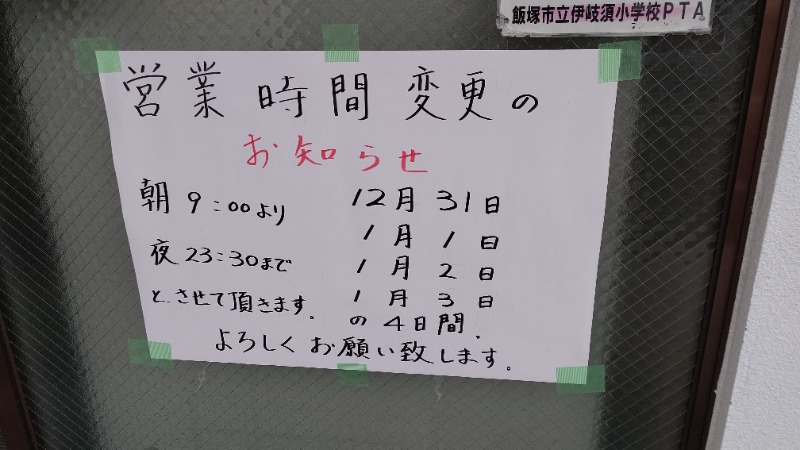 飯塚市立伊岐須小学校PTA
営業時間変更の
お知らせ
朝 9:00より
夜 23:30まで
とさせて頂きます。
12月 31日
1月 1日
1月 2日
1月 3日
の 4日間.
よろしくお願い致します。